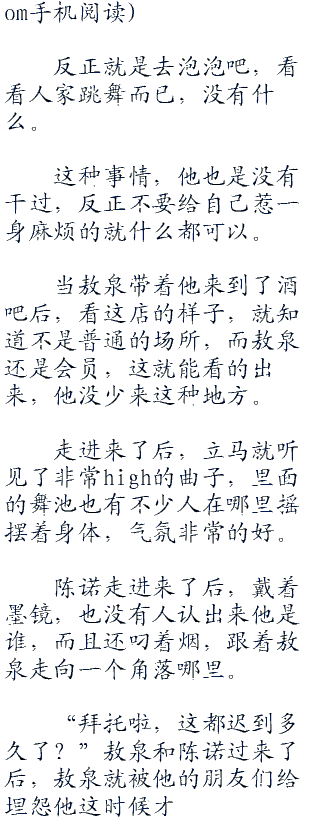 om手机阅读)
反正就是去泡泡吧，看
看人家跳舞而已，没有什
么。
这种事情，他也是没有
干过，反正不要给自己惹一
身麻烦的就什么都可以。
当敖泉带着他来到了酒
吧后，看这店的样子，就知
道不是普通的场所，而敖泉
还是会员，这就能看的出
来，他没少来这种地方。
走进来了后，立马就听
见了非常high的曲子，里面
的舞池也有不少人在哪里摇
摆着身体，气氛非常的好。
陈诺走进来了后，戴着
墨镜，也没有人认出来他是
谁，而且还叼着烟，跟着敖
泉走向一个角落哪里。
“拜托啦，这都迟到多
久了？”敖泉和陈诺过来了
后，敖泉就被他的朋友们给
埋怨他这时候才